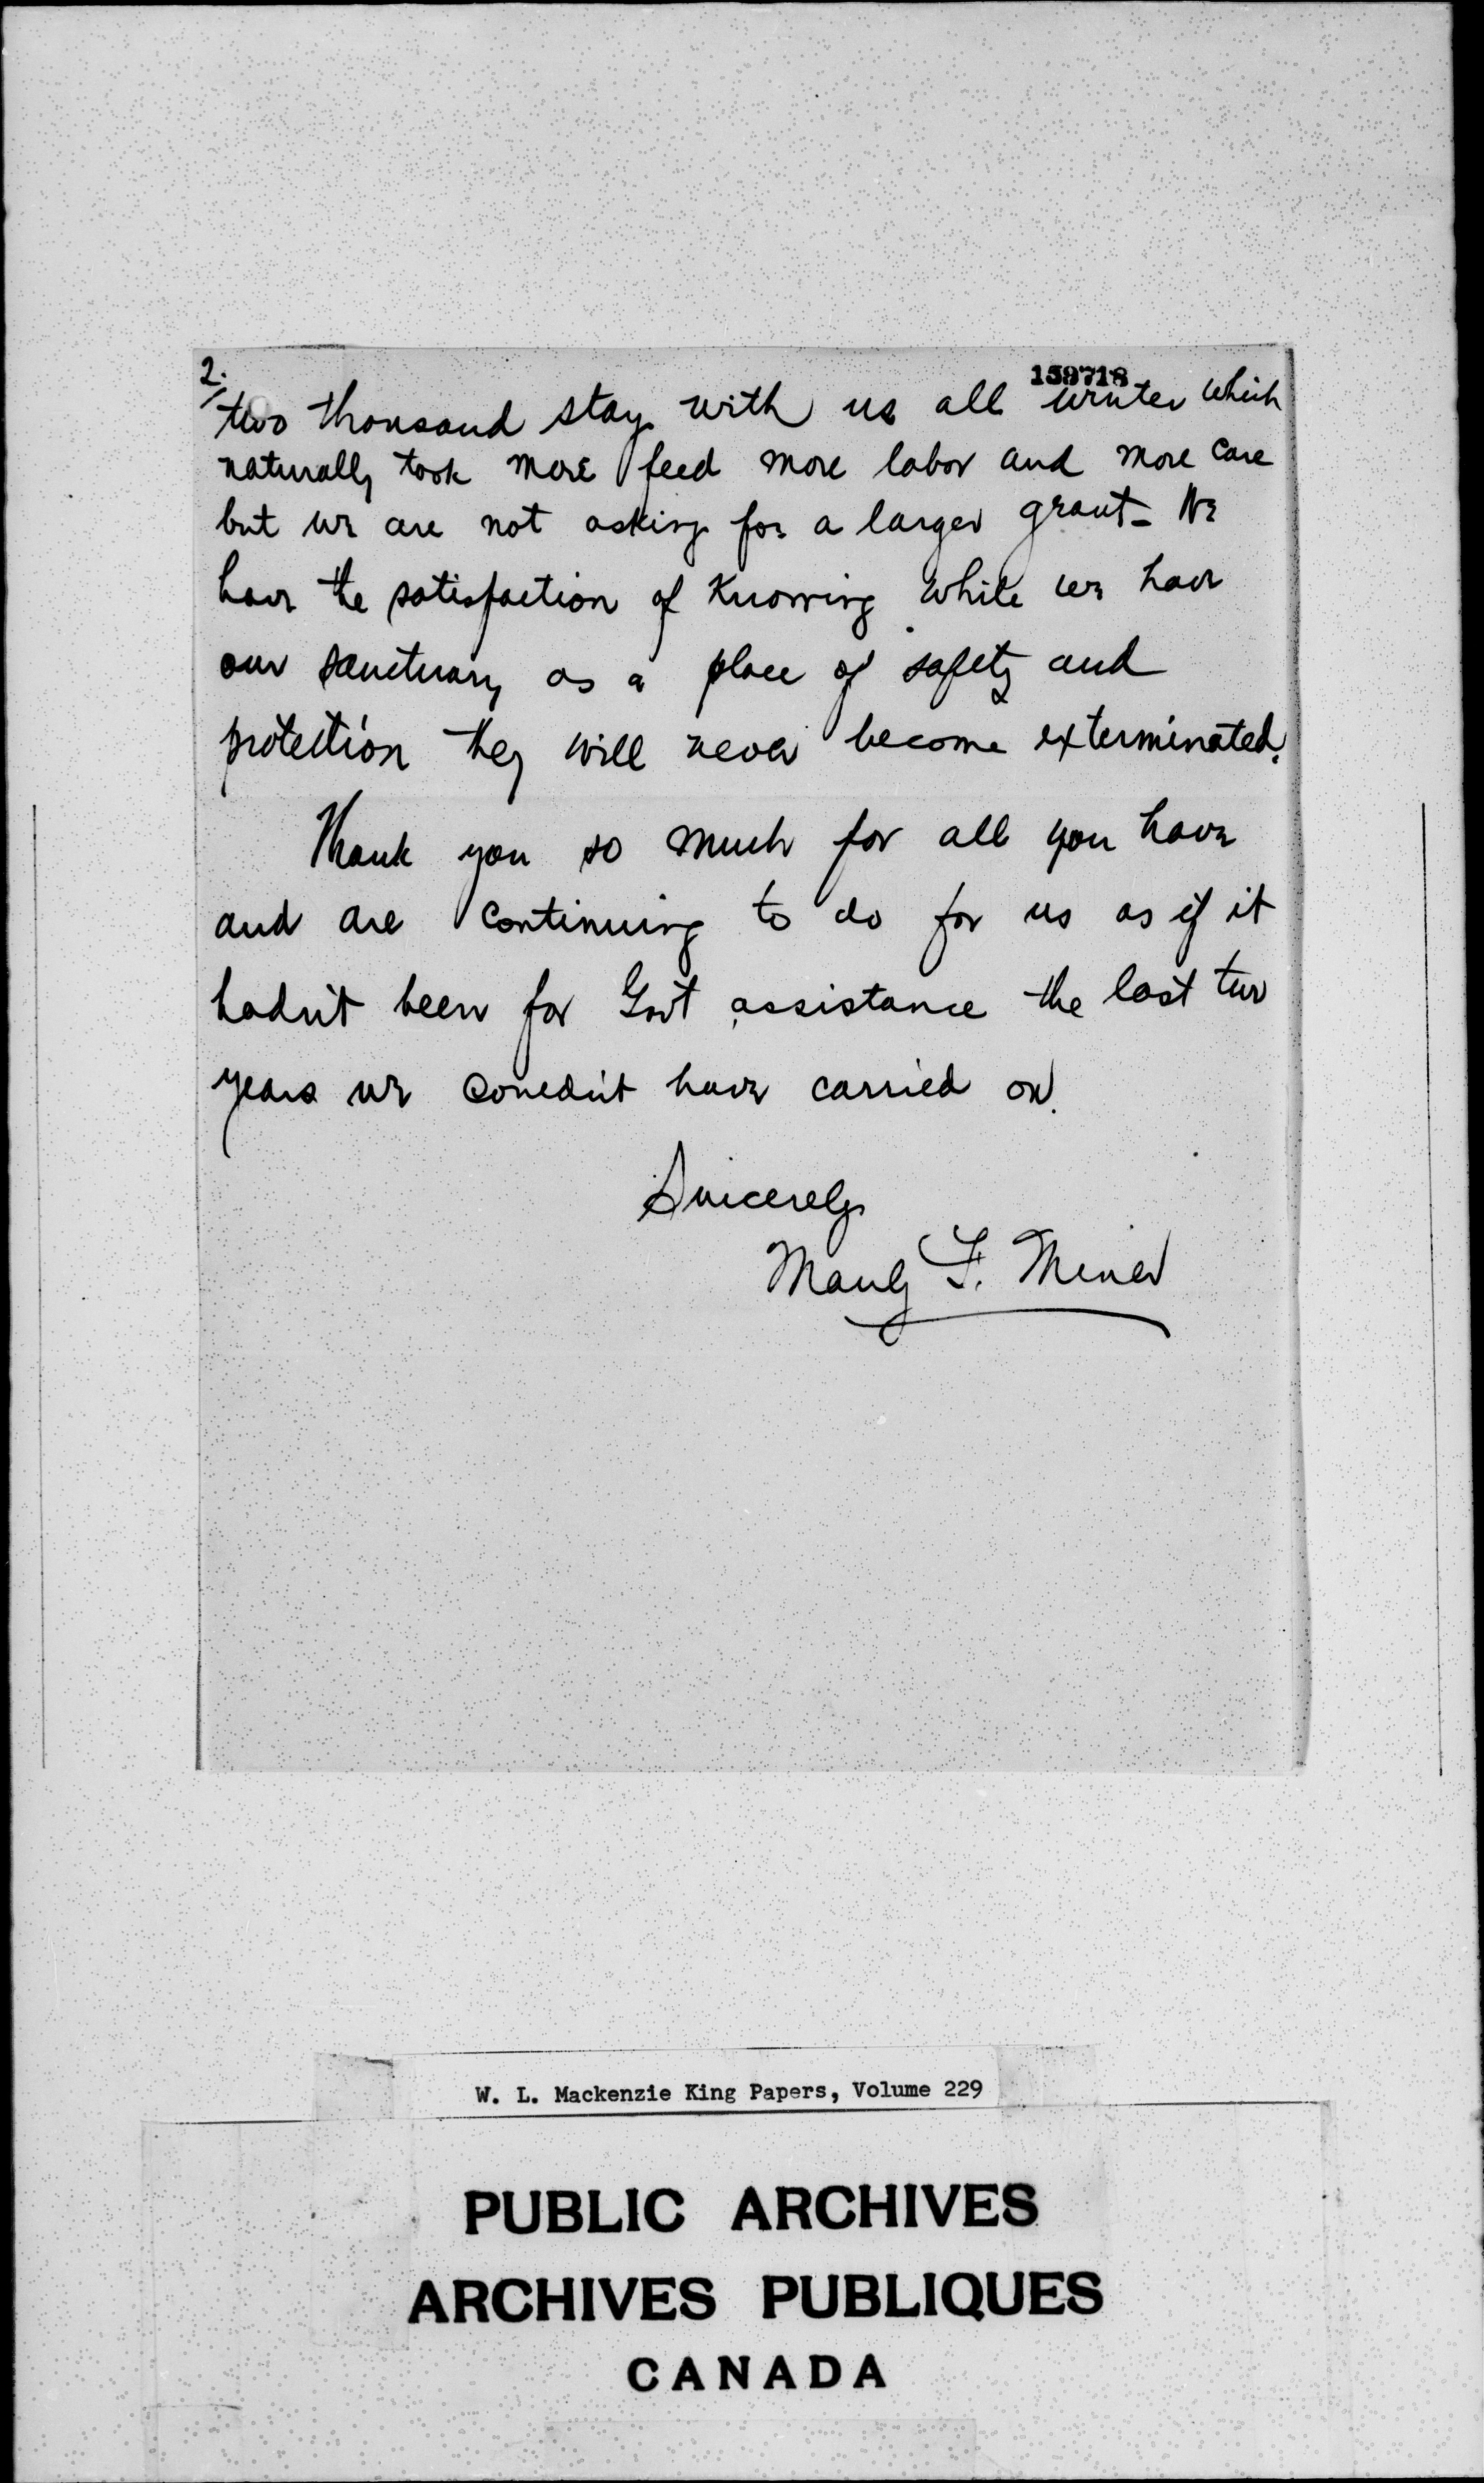 2.
159718
two thousand stay with us all winter which
naturally took more feed more labor and more care
but we are not asking for a larger grant – We
have the satisfaction of knowing while we have
our sanctuary as a place of safety and
protection they will never become exterminated.
Thank you so much for all you have
and are continuing to do for us as if it
hadn't been for Gov't assistance the last two
years we couldn't have carried on.
Sincerely
Manly F. Miner
W. L. Mackenzie King Papers, Volume 229
PUBLIC ARCHIVES
ARCHIVES PUBLIQUES
CANADA